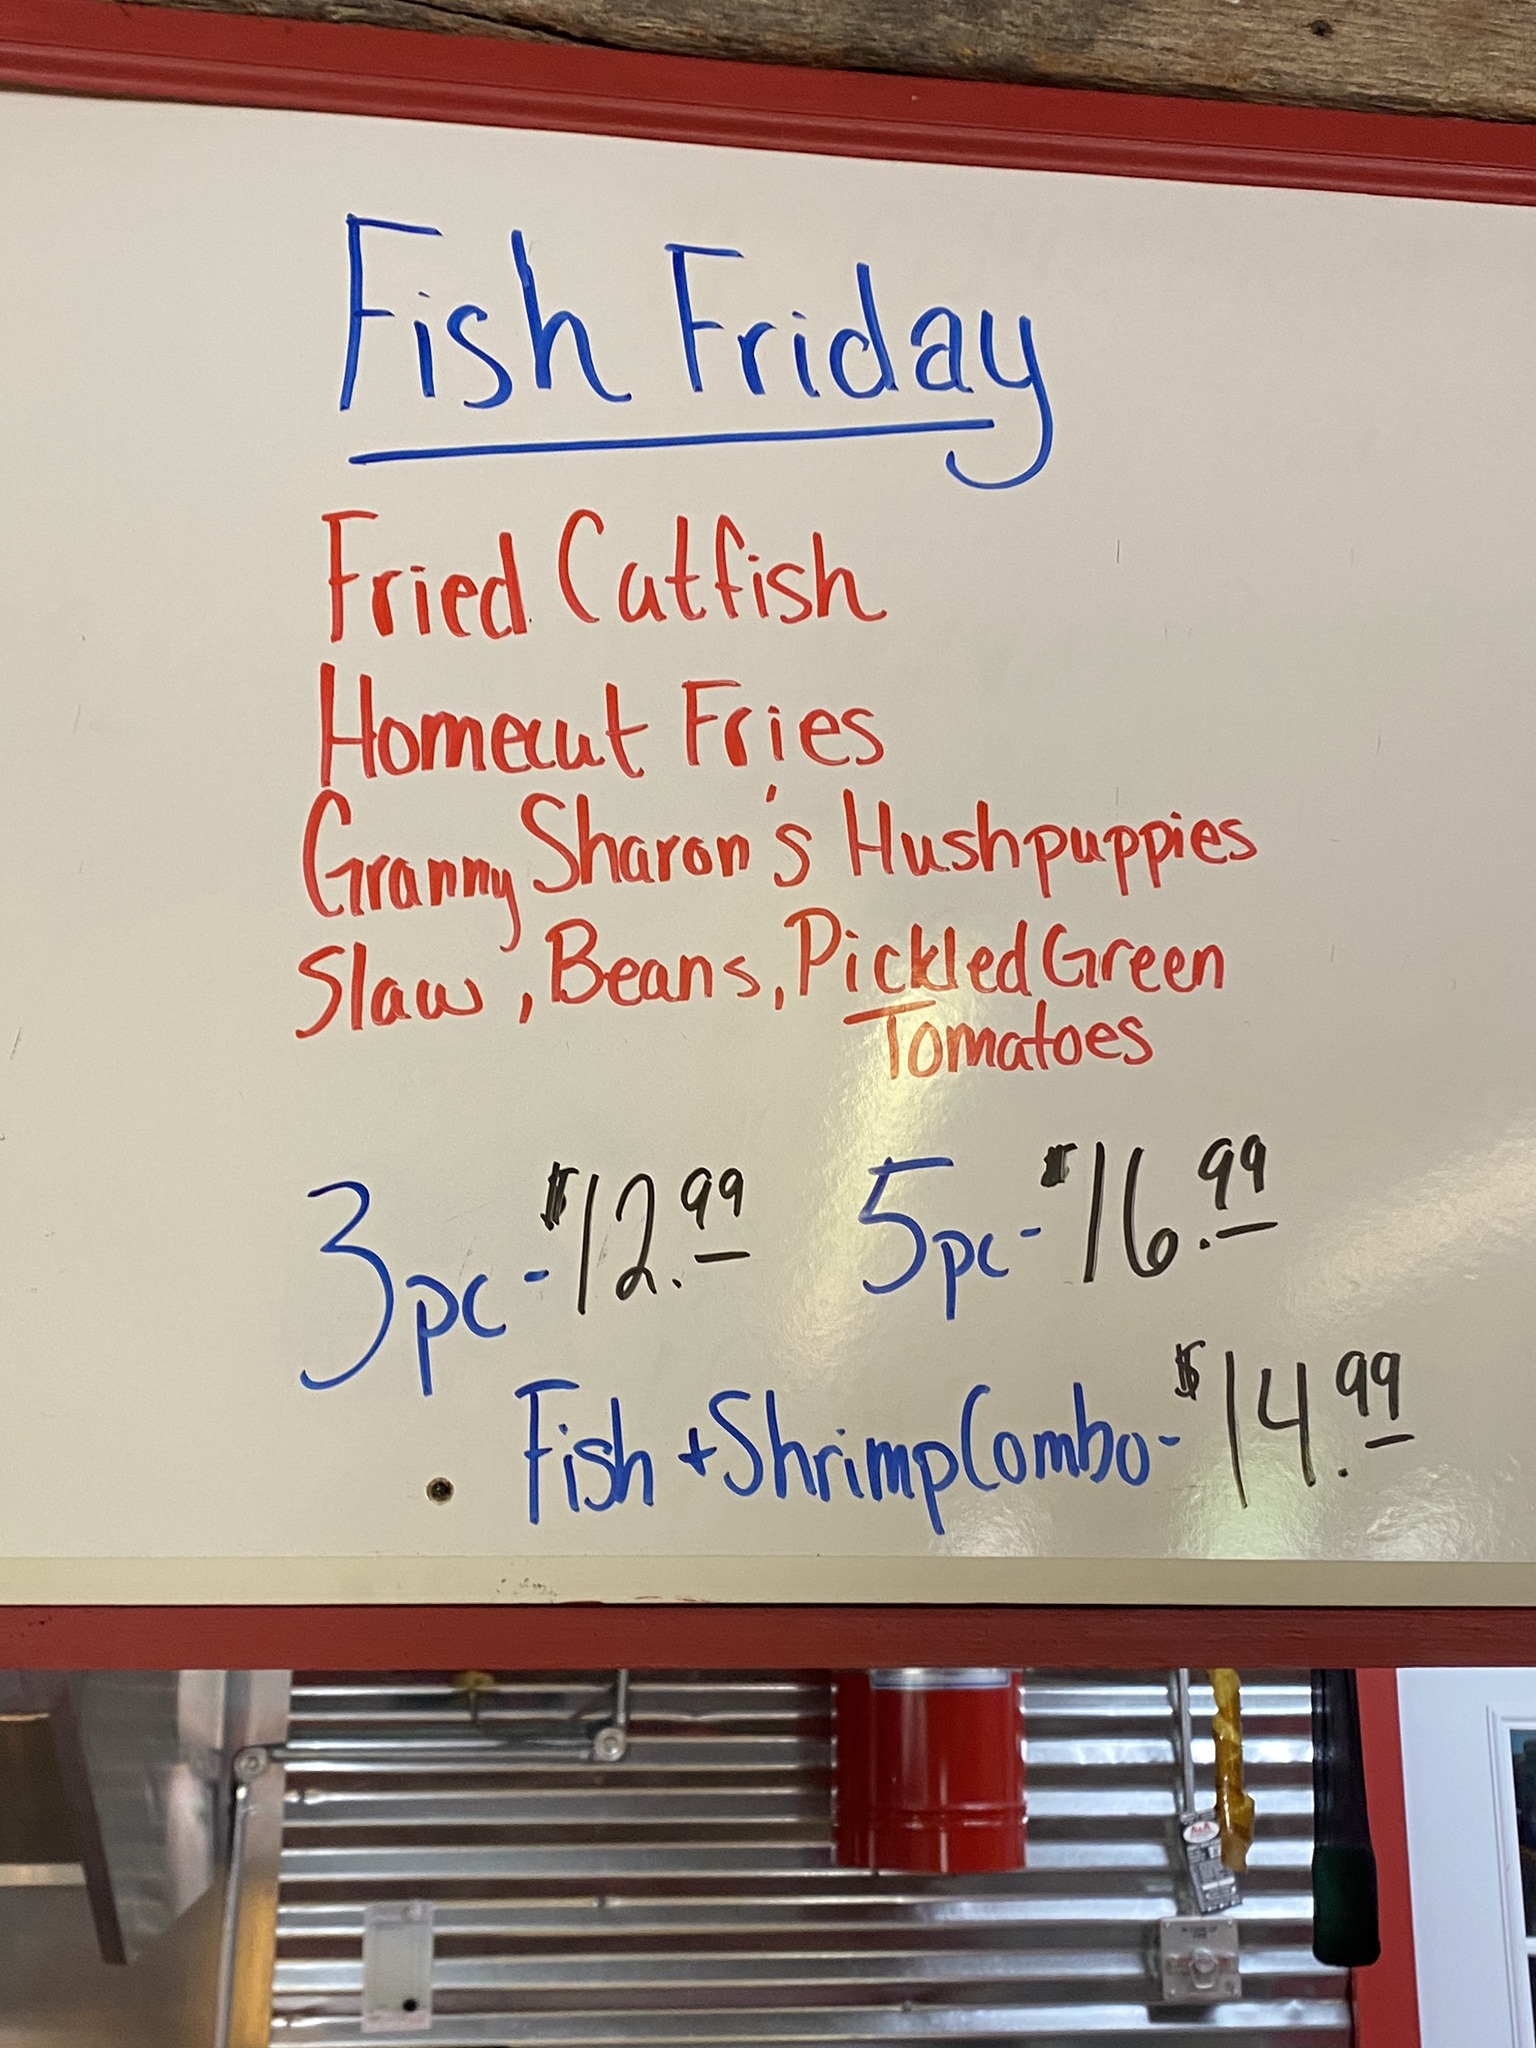 Fish Friday
Fried Catfish
Homecut Fries
Granny Sharon's Hushpuppies
Slaw, Beans, Pickled Green
Tomatoes
3pc - $12.99 5pc - $16.99
Fish + Shrimp Combo - $14.99